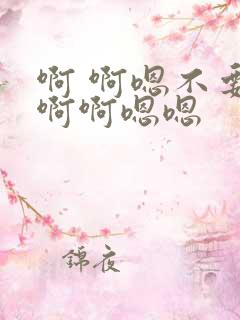 啊 啊嗯不要
啊啊嗯嗯
錦夜